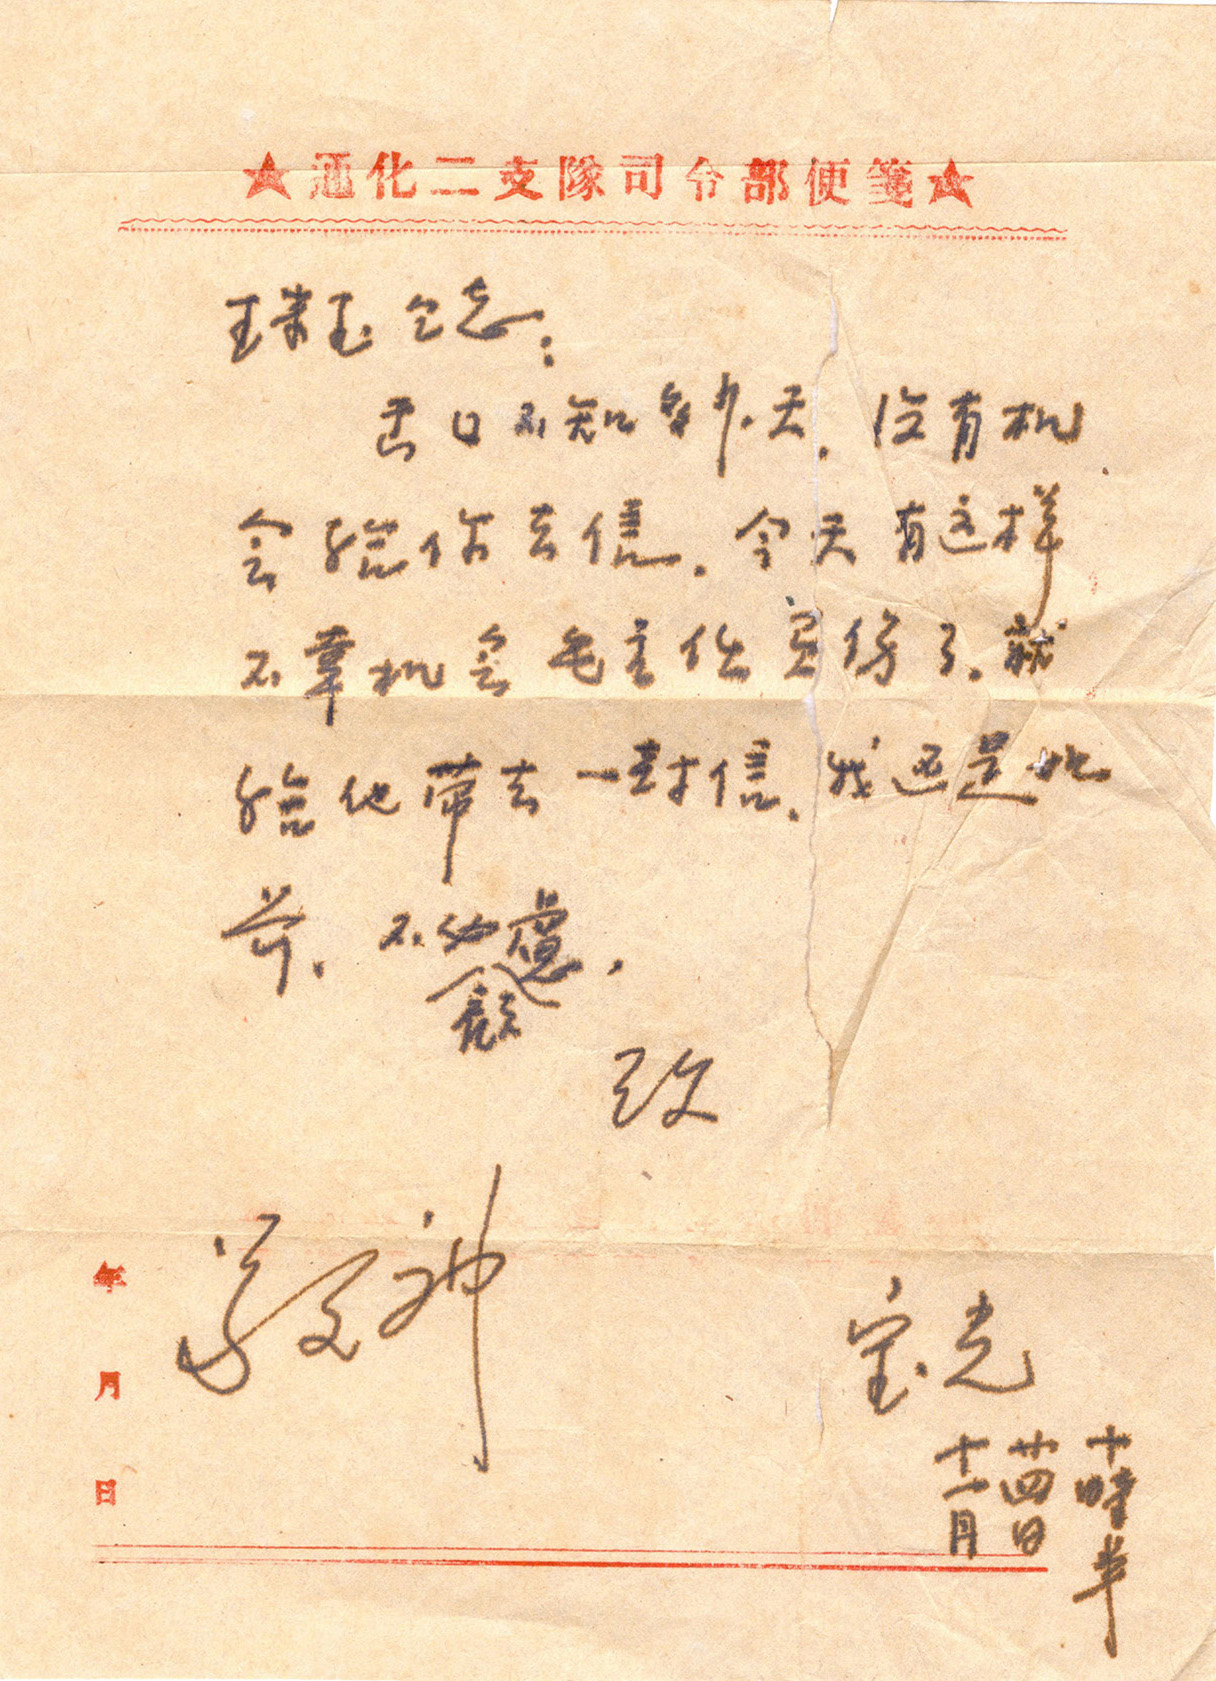 ★通化二支隊司令部便箋★
珠玉仝志：
去口不知多少天．没有机
会给你去信．今天有这样
不幸机会毛主任负伤了．就
给他带去一封信．我还是如
前．不必顾虑．
致
敬神
宝光
十一月
廿四日
十時半
年
月
日